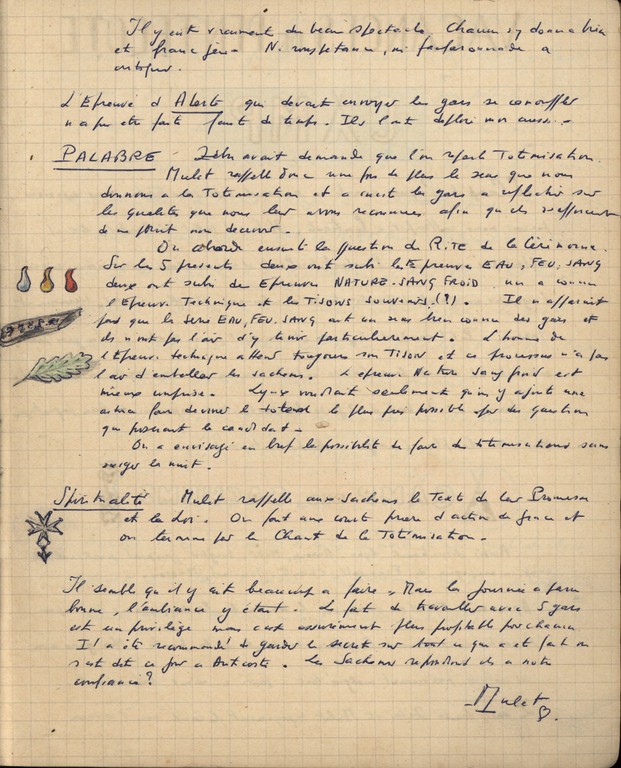 Il y eut vraiment du beau spectacle. Chacun s'y donna bien
et franc jeu. Ni rouspetance, ni fanfaronnade a
critiquer.
L'Epreuve d'Alerte qui devait envoyer les gars se camoufler
n'a pu etre faite faute de temps. Ils l'ont deploré nous aussi.
PALABRE - Zebu avait demandé que l'on refasse Totemisation.
Mulet rappelle donc une fois de plus le sens que nous
donnons a la Totemisation et a invité les gars a reflechir sur
les qualités que nous leur avons reconnues afin qu'ils s'efforcent
de ne point nous decevoir.
On aborde ensuite la question du RITE de la Cérémonie.
Sur les 5 presents deux ont subi les Epreuves EAU, FEU, SANG
deux ont subi les Epreuves NATURE. SANG FROID un a connu
l'Epreuve Technique et les TISONS SOUVENIRS (?). Il n'apparait
pas que la serie EAU, FEU, SANG ait un sens bien connu des gars et
ils n'ont pas l'air d'y tenir particulierement. L'homme de
l'Epreuve technique attend toujours son TISON et ce processus n'a pas
l'air d'emballer les sachems. L'epreuve Nature Sang froid est
mieux comprise. Lynx voudrait seulement qu'on y ajoute une
action faire deviner le totem le plus possible par des questions
que poseraient le candidat.
On a envisagé en bref la possibilité de faire des totemisations sans
exiger la nuit.
Spiritualité Mulet rappelle aux Sachems le Texte de leur Promesse
et la Loi. On fait une courte priere d'action de grace et
on termine par le Chant de la Totemisation.
Il semble qu'il y eut beaucoup a faire. Mais la Journée a paru
bonne, l'ambiance y était. Le fait de travailler avec 5 gars
est un privilège mais c'est assurément plus profitable pour chacun
Il a été recommandé de garder le secret sur tout ce qui a été fait ou
s'est dit ce jour a Anticoste. Les Sachems repondront ils a notre
confiance ?
Mulet